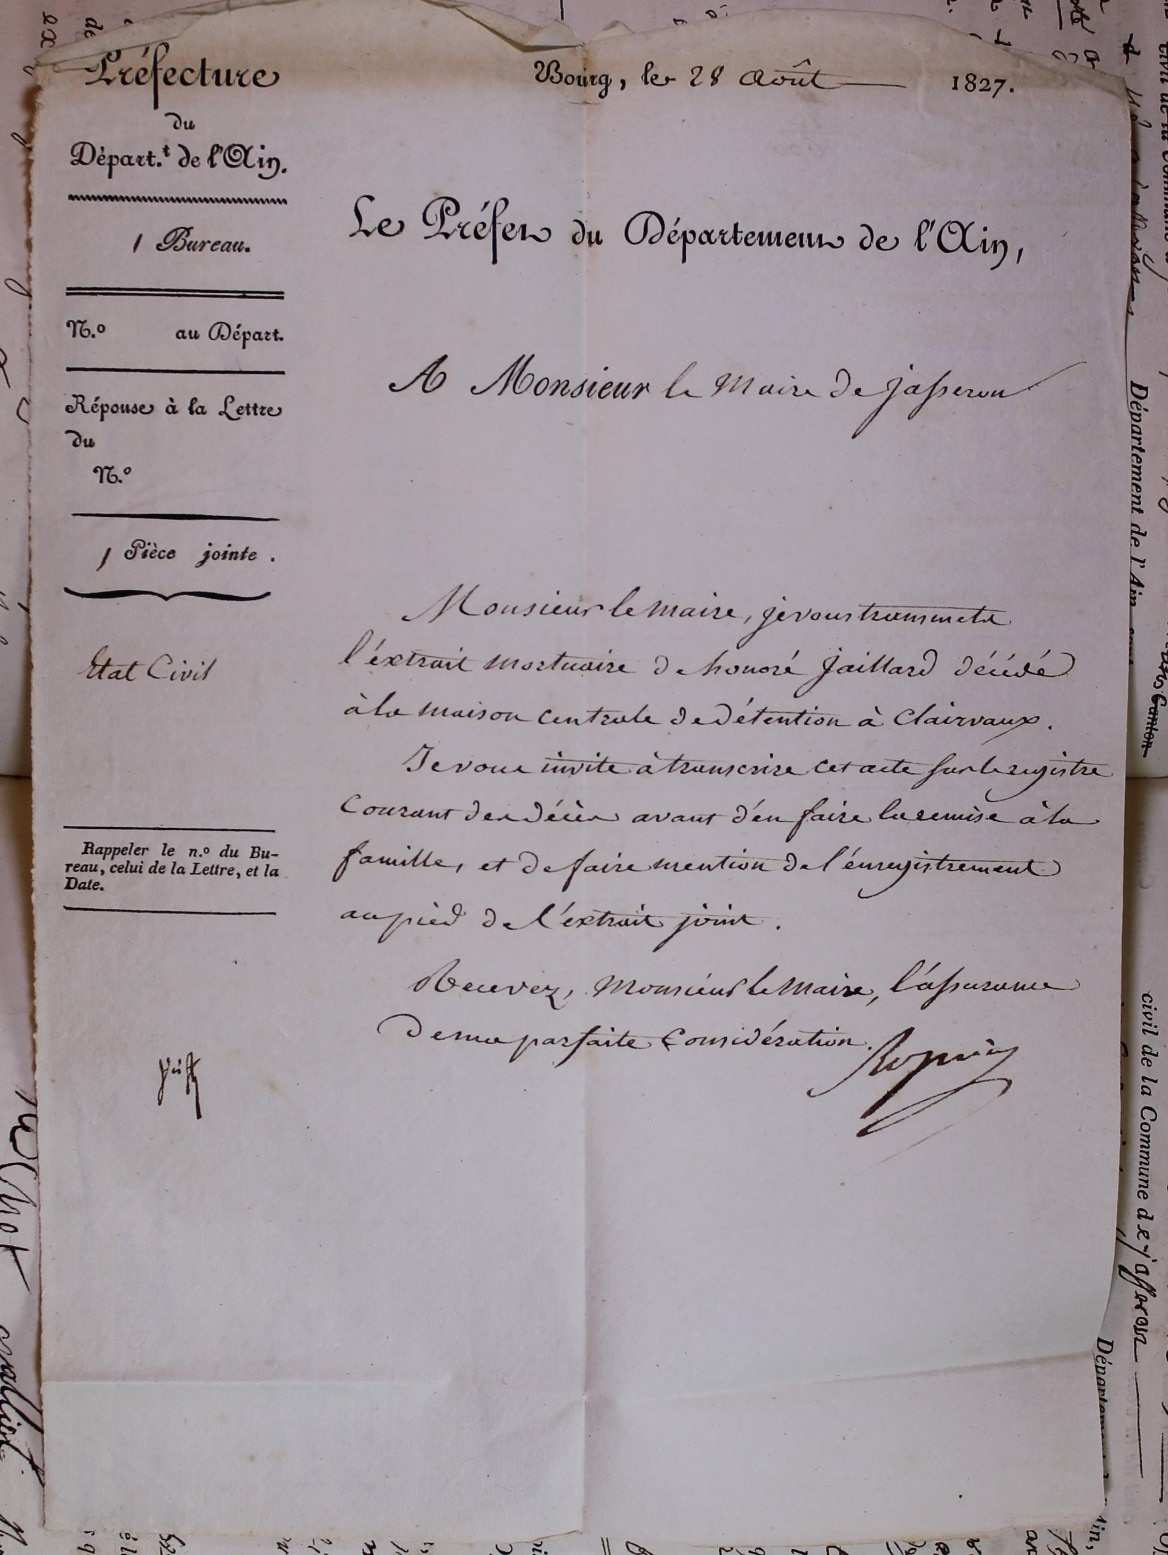 Préfecture
du
Départ.t de l'Ain.
1 Bureau.
N.o au Départ.
Réponse à la Lettre
du
N.o
1 Pièce jointe.
Etat Civil
Rappeler le n.o du Bu-
reau, celui de la Lettre, et la
Date.
Bourg, le 28 Août 1827.
Le Préfet du Département de l'Ain,
A Monsieur le Maire de Jasseron
Monsieur le Maire, je vous transmets
l'éxtrait mortuaire de honoré Jaillard décédé
à la maison centrale de détention à Clairvaux.
Je vous invite à transcrire cet acte sur le registre
courant des décès avant d'en faire la remise à la
famille, et de faire mention de l'énregistrement
au pied de l'éxtrait joint.
Recevez, Monsieur le Maire, l'assurance
de ma parfaite considération.
Département de l'Ain
Canton
civil de la Commune de jasseron